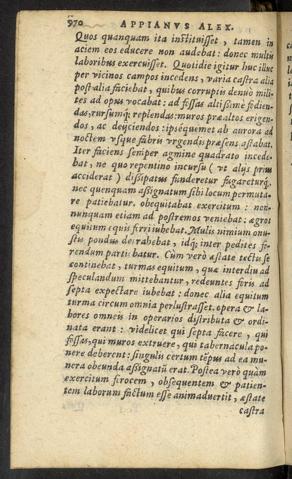 970 APPIANVS ALEX.
Quos quanquam ita instituisset, tamen in
aciem ees educere non audebat: donec multis
laboribus exercuisset. Quotidie igitur huc illuc
per vicinos campos incedens, varia castra alia
post alia faciebat, quibus corruptis denuò mili-
tes ad opus vocabat: ad fossas altissimè fodien-
das, rursumq́; replendas: muros præaltos erigen-
dos, ac deijciendos: ipséque met ab aurora ad
noctem vsque fabris vrgendis præsens astabat.
Iter faciens semper agmine quadrato incede-
bat, ne quo repentino incursu (vt alijs prius
acciderat) dissipatus funderetur fugareturq́;
nec quenquam assignatum sibi locum permuta-
re patiebatur. obequitabat exercitum: non-
nunquam etiam ad postremos veniebat: ægrot
equitum equis ferri iubebat. Mulis nimium onu-
stis pondus detrahebat, idq́; inter pedites fe-
rendum partiebatur. Cum verò æstate tectu se
continebat, turmas equitum, quæ interdiu ad
speculandum mittebantur, redeuntes foris ad
septa expectare iubebat: donec alia equitum
turma circum omnia perlustrasset. opera & la-
bores omneis in operarios distributa & ordi-
nata erant: videlicet qui septa facere, qui
fossas, qui muros extruere, qui tabernacula po-
nere deberent: singulis certum tēpus ad ea mu-
nera obeunda assignatū erat. Postea verò quàm
exercitum firocem, obsequentem & patien-
tem laborum factum esse animaduertit, æstate
castra